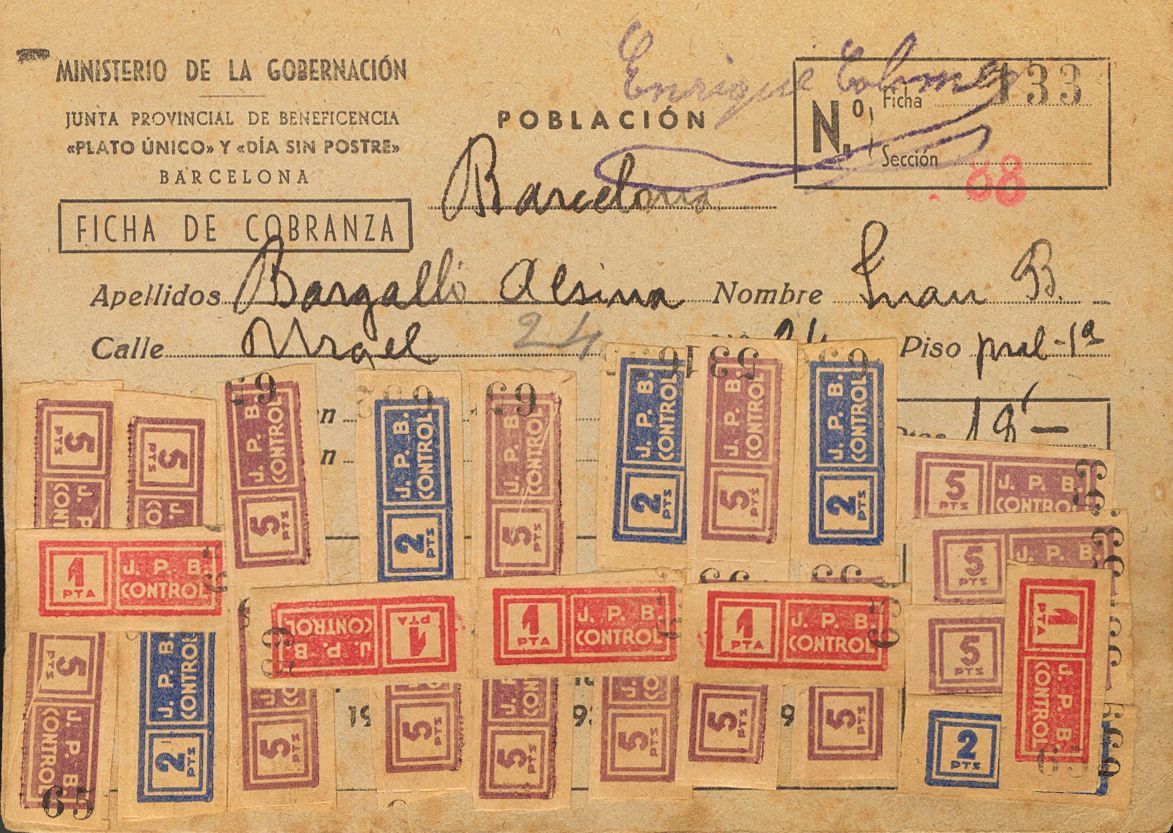 MINISTERIO DE LA GOBERNACIÓN
JUNTA PROVINCIAL DE BENEFICENCIA
«PLATO ÚNICO» Y «DÍA SIN POSTRE»
BARCELONA
FICHA DE COBRANZA
Enrique
POBLACIÓN
Barcelona
N.º Ficha 133
Sección 88
Apellidos Bargalló Alsina Nombre Juan B.
Calle Urgel 24 24 Piso pral-1ª
18'-
5 PTS
5 PTS
J. P. B. CONTROL 5 PTS
J. P. B. CONTROL 2 PTS
J. P. B. CONTROL 5 PTS
J. P. B. CONTROL 2 PTS
J. P. B. CONTROL 5 PTS
J. P. B. CONTROL 2 PTS
5 PTS J. P. B. CONTROL
5 PTS J. P. B.
5 PTS
1 PTA J. P. B. CONTROL
1 PTA J. P. B. CONTROL
1 PTA J. P. B. CONTROL
1 PTA J. P. B. CONTROL
1 PTA J. P. B. CONTROL
5 PTS J. P. B. CONTROL
J. P. B. CONTROL 2 PTS
5 PTS
5 PTS
5 PTS
5 PTS
5 PTS
5 PTS
2 PTS